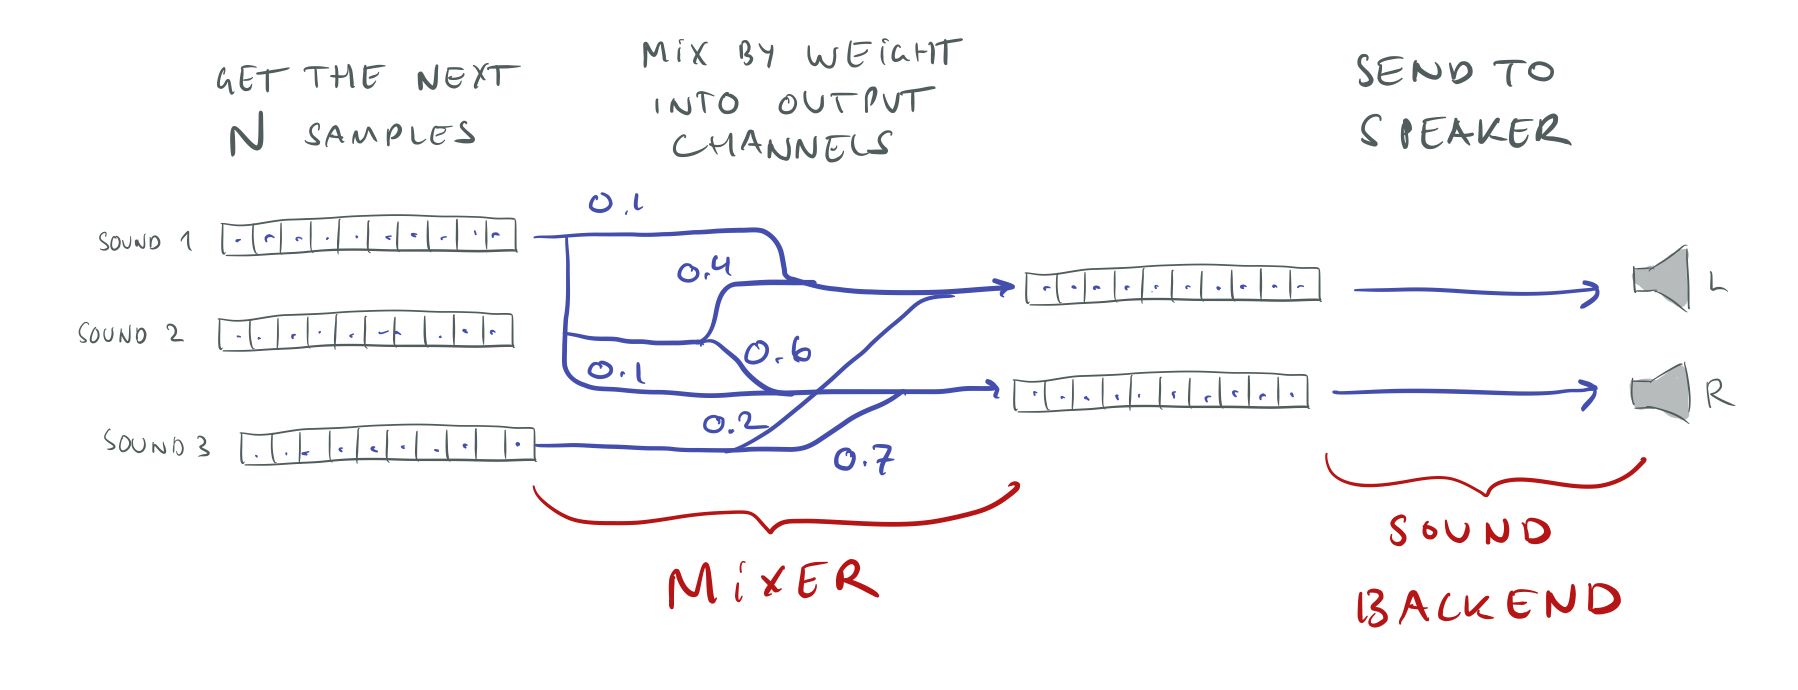 GET THE NEXT
N SAMPLES
MIX BY WEIGHT
INTO OUTPUT
CHANNELS
SEND TO
SPEAKER
SOUND 1
0.1
0.4
L
SOUND 2
0.6
0.1
R
SOUND 3
0.2
0.7
MIXER
SOUND
BACKEND